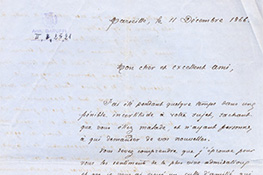 Marseille, le 11 Décembre 1866.
Mon cher et excellent ami,
J'ai été pendant quelque temps dans une
pénible incertitude à votre sujet, sachant
que vous étiez malade, et n'ayant personne
à qui demander de vos nouvelles.
Vous devez comprendre que j'éprouve pour
vous les sentiments de la plus vive admiration